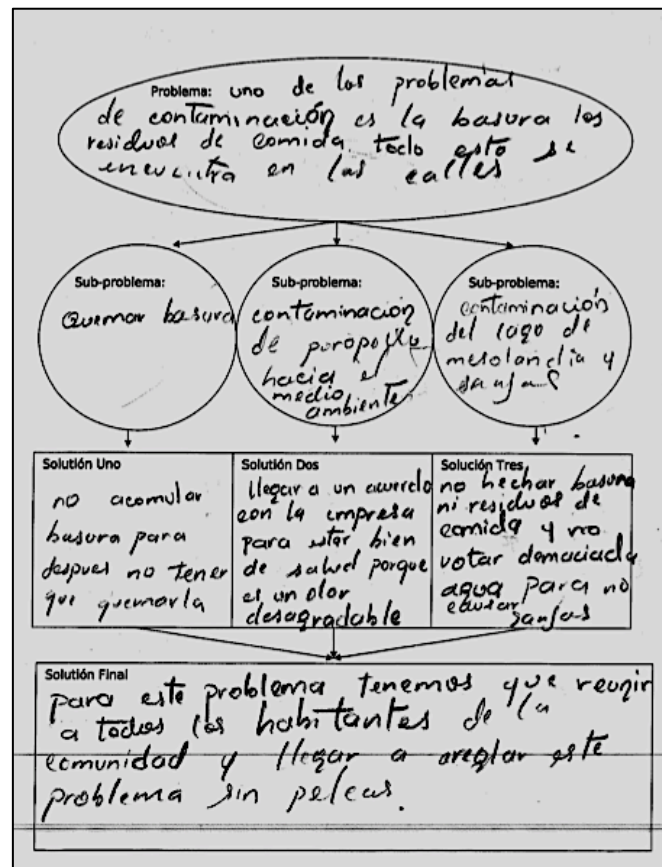 Problema: uno de los problemas
de contaminación es la basura los
residuos de comida todo esto se
encuentra en las calles
Sub-problema:
Quemar basura
Sub-problema:
contaminación
de
hacia el
medio
ambiente
Sub-problema:
contaminación
del lago de
metolandia y
sanjas
Solutión Uno
no acomular
basura para
despues no tener
que quemarla
Solutión Dos
llegar a un acuerdo
con la impresa
para estar bien
de salud porque
es un olor
desagradable
Solución Tres
no hechar basura
ni residuos de
comida y no
votar demaciada
agua para no
causar sanjas
Solutión Final
para este problema tenemos que reunir
a todos los habitantes de la
comunidad y llegar a areglar este
problema sin peleas.